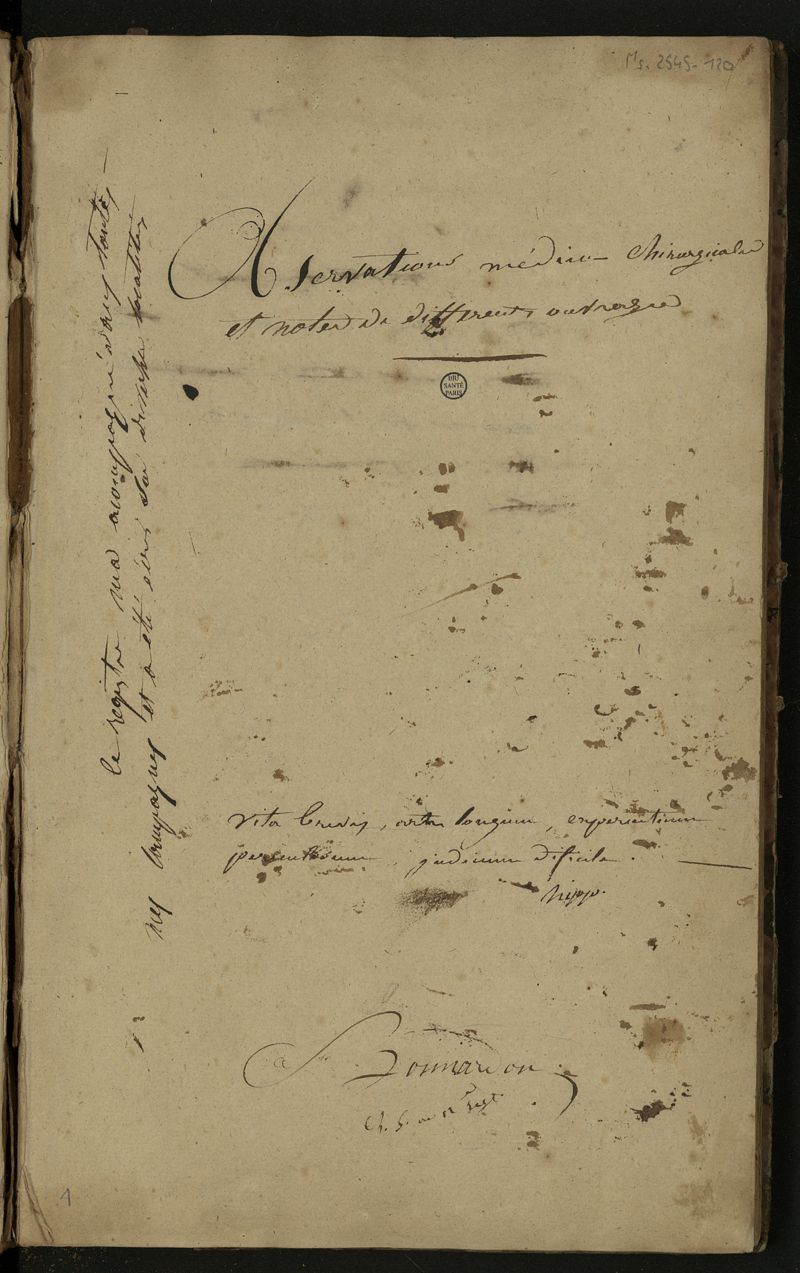 Ms. 2545-120
Observations médico-chirurgicales
et notes de differents ouvrages
BIU
SANTÉ
PARIS
le registre ma acompagné dans toutes
mes campagnes et a été écris sur diverses
vita brevis, arta longum, experientium
periculosum, judicium dificile.
hipp.
a Bonnardon
1